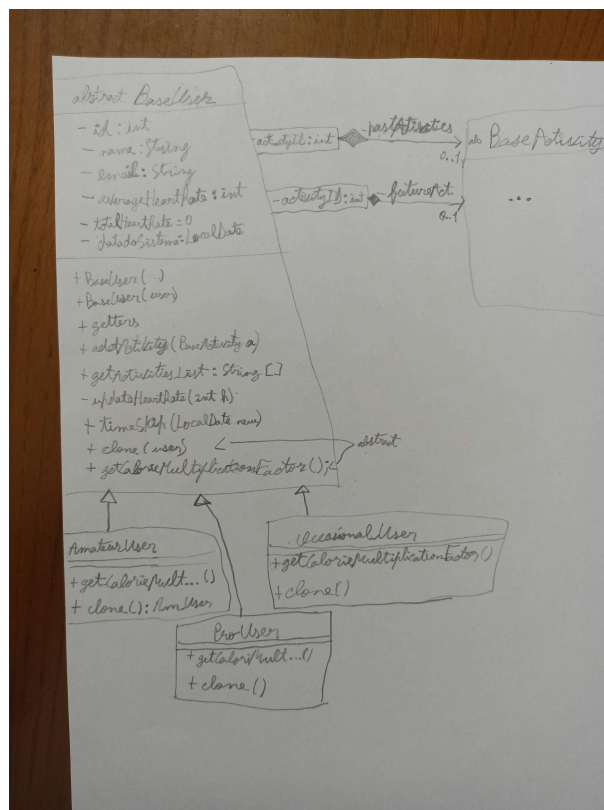 abstract BaseUser
- id : int
- name : String
- email : String
- averageHeartRate : int
- totalHeartRate = 0
- datadoSistema : LocalDate
+ BaseUser (..)
+ BaseUser (user)
+ getters
+ addActivity (BaseActivity a)
+ getActivitiesList : String []
- updateHeartRate (int h)
+ timeSkip (LocalDate new)
+ clone (user)
abstract
+ getCalorieMultiplicationFactor ();
- activityID : int
- pastActivities
0..1
- activityID : int
- futureAct.
0..1
ab BaseActivity
...
AmateurUser
+ getCalorieMult... ()
+ clone () : AmUser
ProUser
+ getCaloriMult...()
+ clone ()
OccasionalUser
+ getCalorieMultiplicationFactor ()
+ clone ()